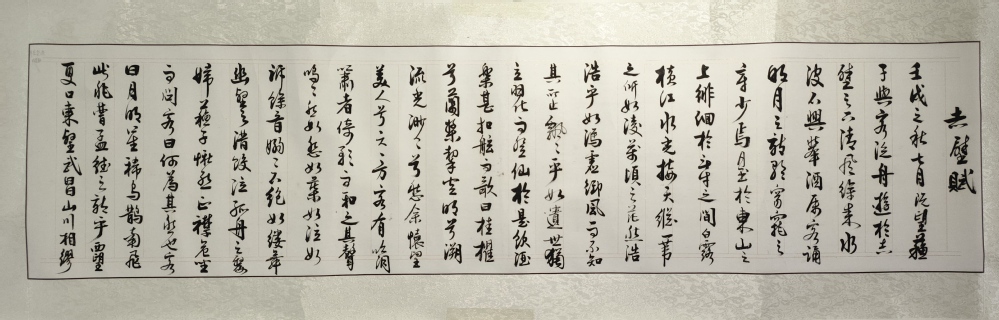 赤壁賦
壬戌之秋七月既望蘇
子與客泛舟遊於赤
壁之下清風徐來水
波不興舉酒屬客誦
明月之詩歌窈窕之
章少焉月出於東山之
上徘徊於斗牛之間白露
橫江水光接天縱一葦
之所如凌萬頃之茫然浩
浩乎如馮虛御風而不知
其所止飄々乎如遺世獨
立羽化而登仙於是飲酒
樂甚扣舷而歌曰桂櫂
兮蘭槳擊空明兮溯
流光渺々兮愁余懷望
美人兮天一方客有吹洞
簫者倚歌而和之其聲
嗚々然如怨如慕如泣如
訴餘音嫋々不絕如縷舞
幽壑之潛蛟泣孤舟之嫠
婦蘇子愀然正襟危坐
而問客曰何為其然也客
曰月明星稀烏鵲南飛
此非曹孟德之詩乎西望
夏口東望武昌山川相繆